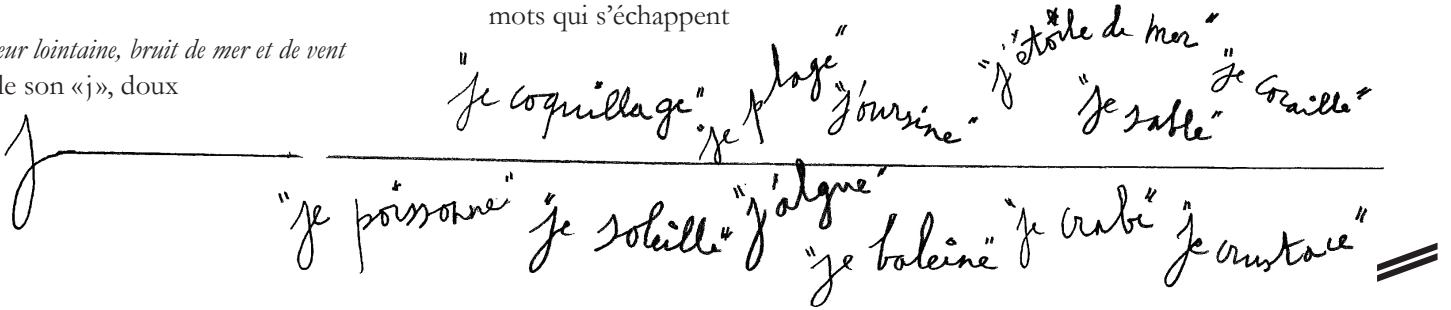 mots qui s’échappent
eur lointaine, bruit de mer et de vent
le son «j», doux
"je coquillage" "je plage" "j'oursine" "j'étoile de mer" "je sable" "je coraille"
j
"je poissonne" "je soleille" "j'algue" "je baleine" "je crabe" "je crustace"